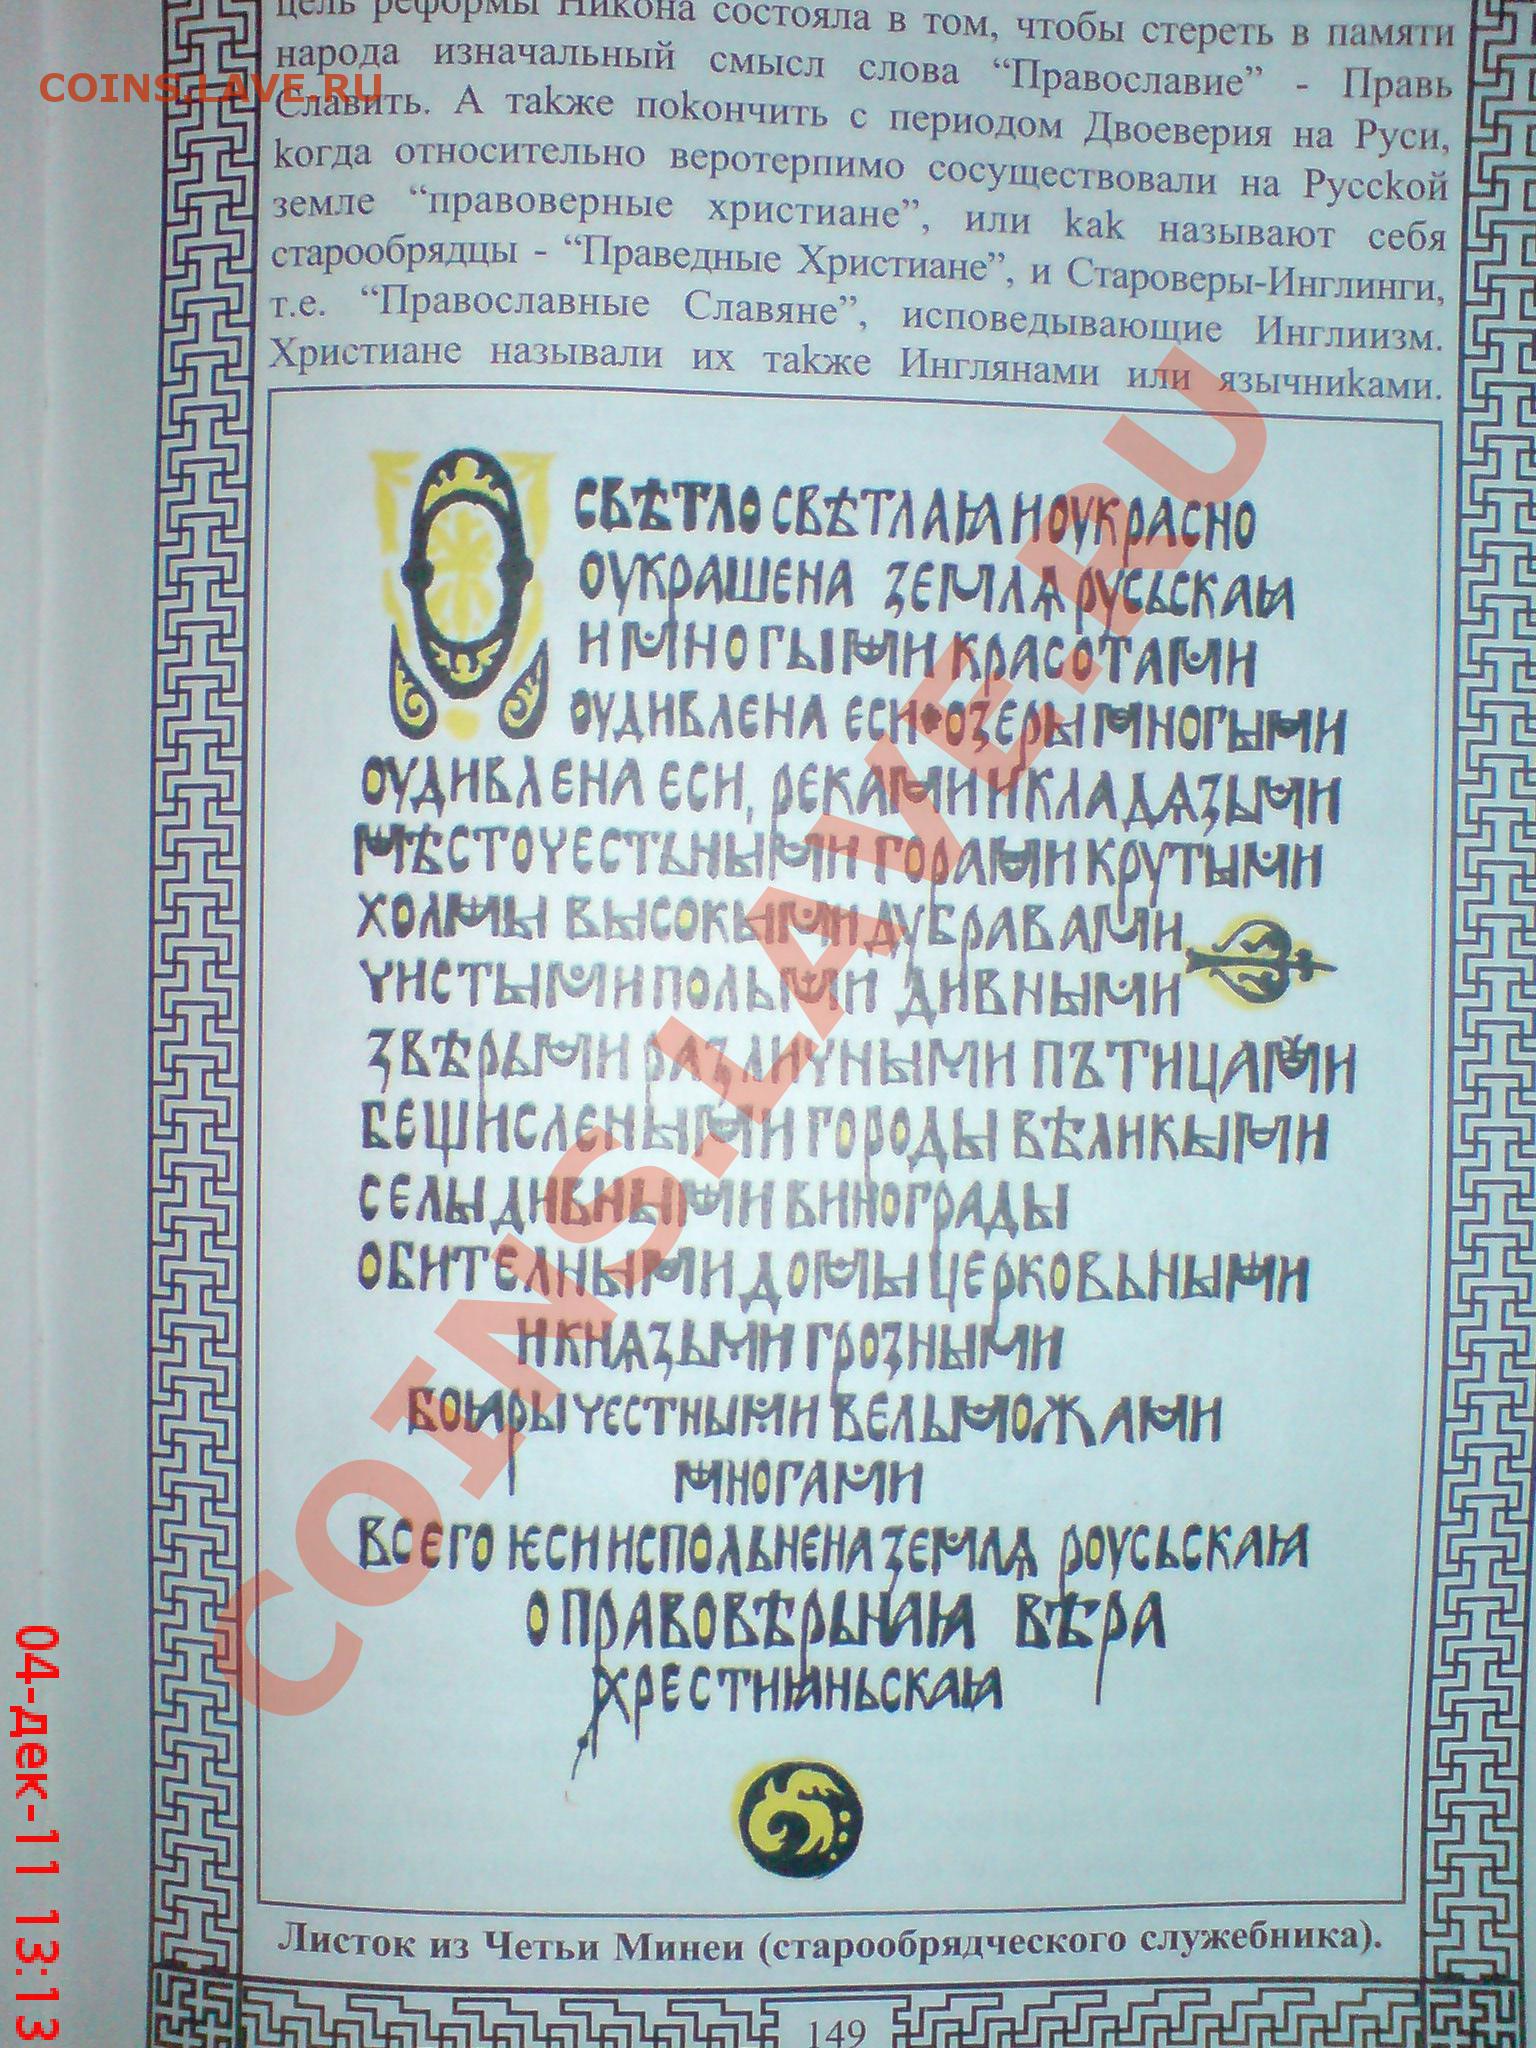 цель реформы Никона состояла в том, чтобы стереть в памяти
народа изначальный смысл слова “Православие” - Правь
Славить. А также покончить с периодом Двоеверия на Руси,
когда относительно веротерпимо сосуществовали на Русской
земле “правоверные христиане”, или как называют себя
старообрядцы - “Праведные Христиане”, и Староверы-Инглинги,
т.е. “Православные Славяне”, исповедывающие Инглиизм.
Христиане называли их также Инглянами или язычниками.
О свѣтло свѣтлаꙗ и оукрасно
оукрашена землѧ русьскаꙗ
и многыми красотами
оудивлена еси • озеры многыми
оудивлена еси, реками и кладѧзьми
мѣсточестьными горами крутыми
холмы высокыми дубравами
чистыми польми дивными
звѣрьми различными пътицами
бещислеными городы вѣликыми
селы дивными винограды
обителными домы церковьными
и кнѧзьми грозными
боꙗры честными вельможами
многами
всего ѥси испольнена землѧ роусьскаꙗ
о правовѣрьнаꙗ вѣра
хрестиꙗньскаꙗ
Листок из Четьи Минеи (старообрядческого служебника).
149
COINS.LAVE.RU
COINS.LAVE.RU
04-дек-11 13:13